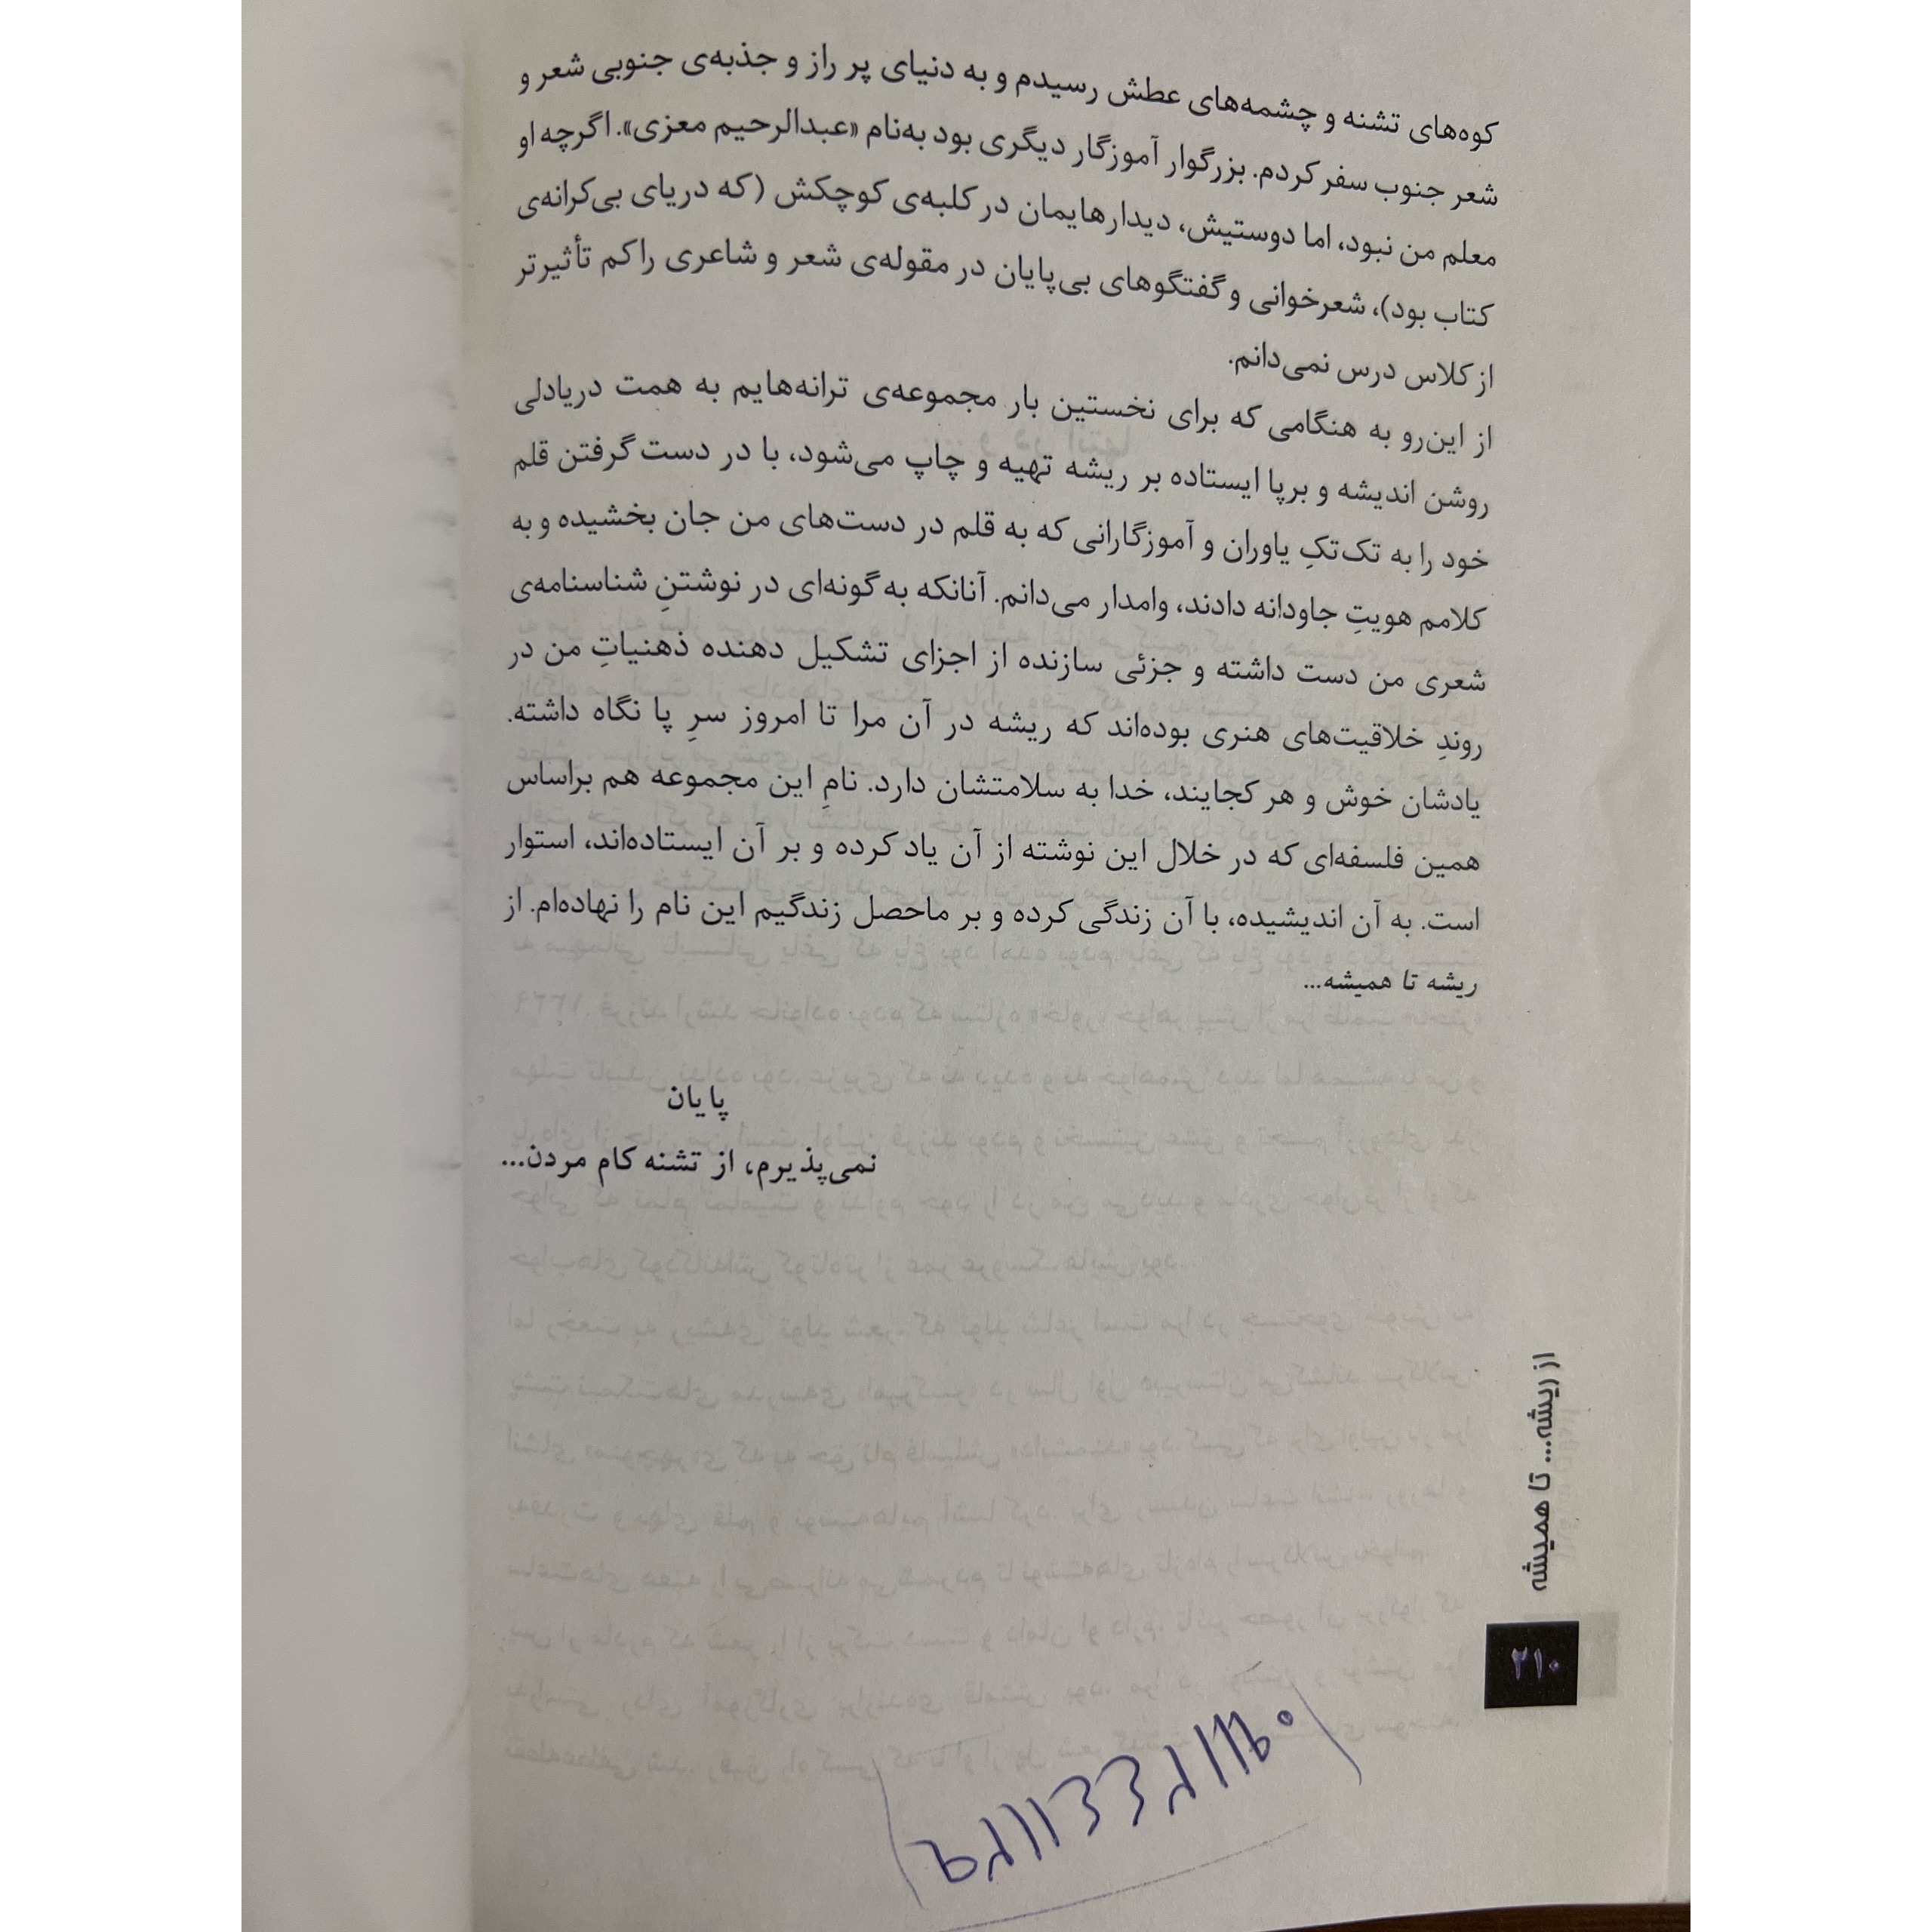 کوه‌های تشنه و چشمه‌های عطش رسیدم و به دنیای پر راز و جذبه‌ی جنوبی شعر و
شعر جنوب سفر کردم. بزرگوار آموزگار دیگری بود به‌نام «عبدالرحیم معزی». اگرچه او
معلم من نبود، اما دوستیش، دیدارهایمان در کلبه‌ی کوچکش (که دریای بی‌کرانه‌ی
کتاب بود)، شعرخوانی و گفتگوهای بی‌پایان در مقوله‌ی شعر و شاعری را کم تأثیرتر
از کلاس درس نمی‌دانم.
از این‌رو به هنگامی که برای نخستین بار مجموعه‌ی ترانه‌هایم به همت دریادلی
روشن اندیشه و برپا ایستاده بر ریشه تهیه و چاپ می‌شود، با در دست گرفتن قلم
خود را به تک‌تکِ یاوران و آموزگارانی که به قلم در دست‌های من جان بخشیده و به
کلامم هویتِ جاودانه دادند، وامدار می‌دانم. آنانکه به گونه‌ای در نوشتنِ شناسنامه‌ی
شعری من دست داشته و جزئی سازنده از اجزای تشکیل دهنده ذهنیاتِ من در
روندِ خلاقیت‌های هنری بوده‌اند که ریشه در آن مرا تا امروز سرِ پا نگاه داشته.
یادشان خوش و هر کجایند، خدا به سلامتشان دارد. نامِ این مجموعه هم براساس
همین فلسفه‌ای که در خلال این نوشته از آن یاد کرده و بر آن ایستاده‌اند، استوار
است. به آن اندیشیده، با آن زندگی کرده و بر ماحصل زندگیم این نام را نهاده‌ام. از
ریشه تا همیشه...
پایان
نمی‌پذیرم، از تشنه کام مردن...
از ریشه... تا همیشه
۲۱۰